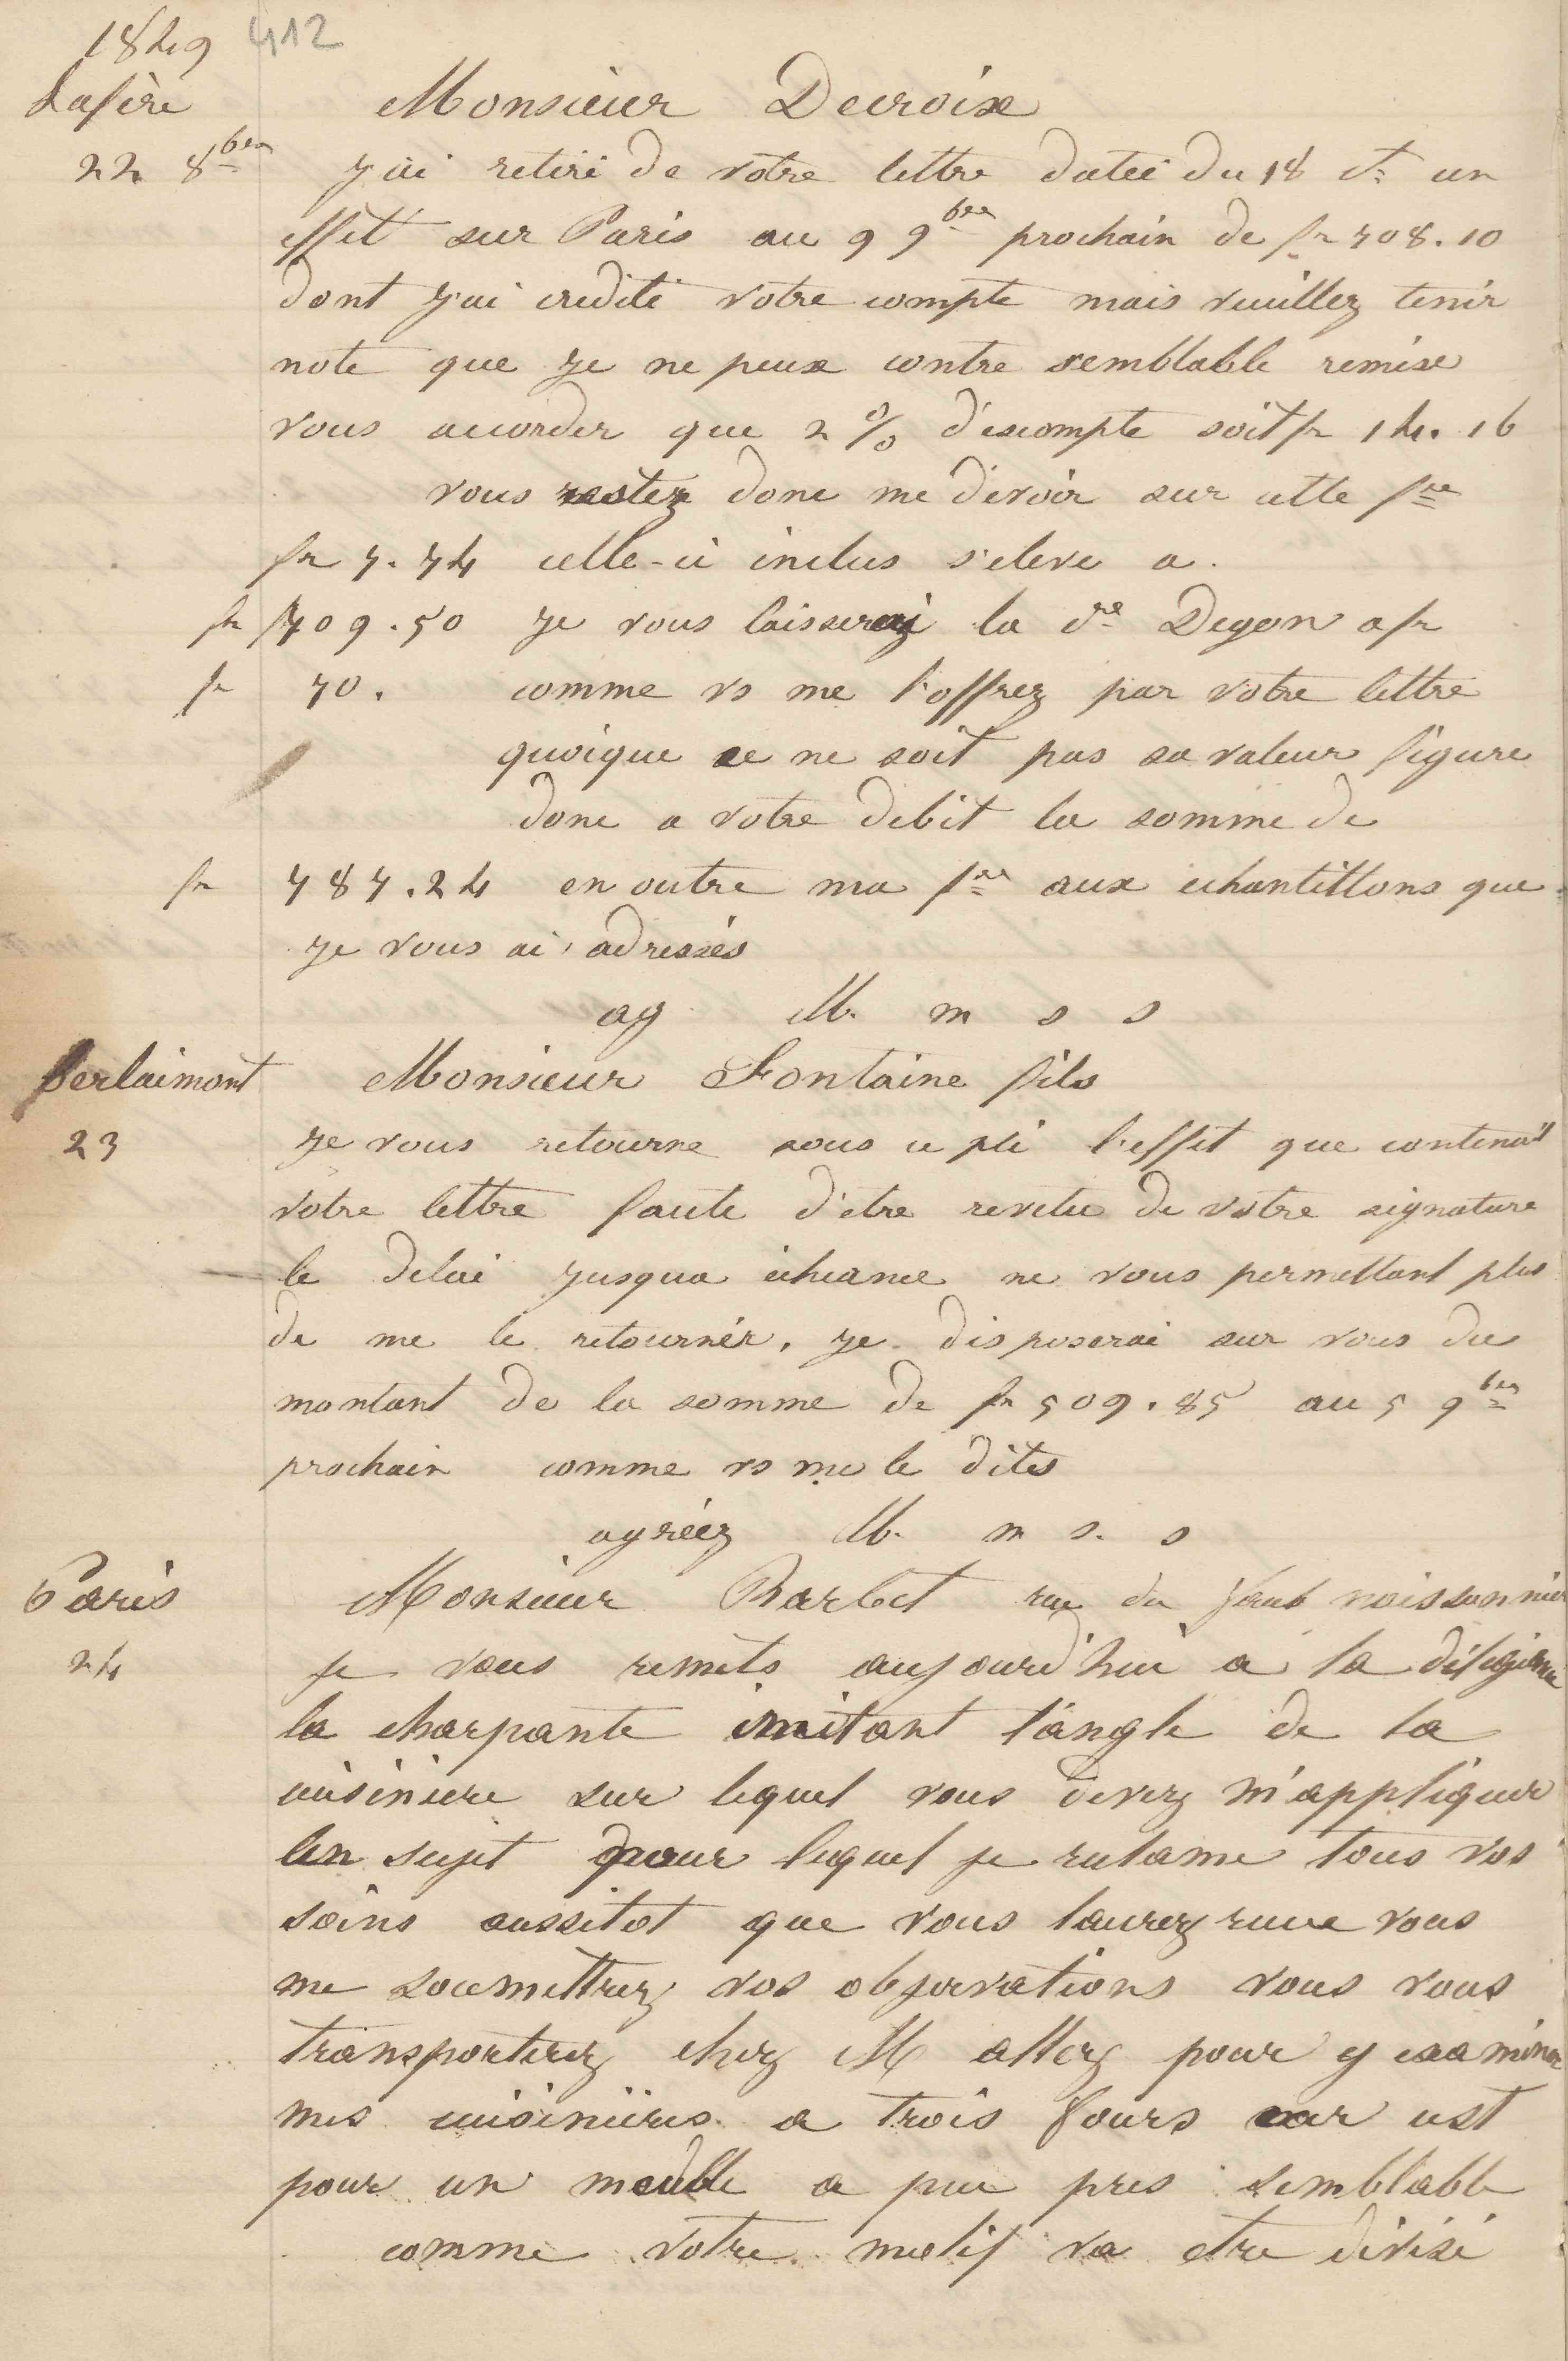 1849 412
Lafère Monsieur Decroix
22 8bre J'ai retiré de votre lettre datée du 18 ct un
effet sur Paris au 9 9bre prochain de fr 708.10
dont j'ai credité votre compte mais veuillez tenir
note que je ne peux contre semblable remise
vous accorder que 2 % d'escompte soit fr 14.16
vous restez donc me devoir sur cette fre
fr 7.74 celle-ci inclus s'eleve a.
fr 709.50 je vous laisserai la dre Degon a fr
fr 70. comme vs me l'offrez par votre lettre
quoique ce ne soit pas sa valeur figure
donc a votre debit la somme de
fr 787.24 en outre ma fre aux echantillons que
je vous ai adressés
ag M. m s s
Berlaimont Monsieur Fontaine fils
23 je vous retourne sous ce pli l'effet que contenait
votre lettre faute d'etre revetu de votre signature
le delai jusqua écheance ne vous permettant plus
de me le retourner, je disposerai sur vous du
montant de la somme de fr 509.85 au 5 9bre
prochain comme vs me le dites
agréez M. m s. s
Paris Monsieur Barbet rue du faub poissonnier
24 je vous remets aujourd'hui a la diligence
la charpante imitant l'angle de la
cuisiniere sur lequel vous devez m'appliquer
un sujet pour lequel je reclame tous vos
soins aussitot que vous laurez recue vous
me soumettrez vos observations vous vous
transporterez chez M allez pour y examiner
mes cuisinières a trois fours car cest
pour un meuble a peu pres semblable
comme votre motif va etre divisé